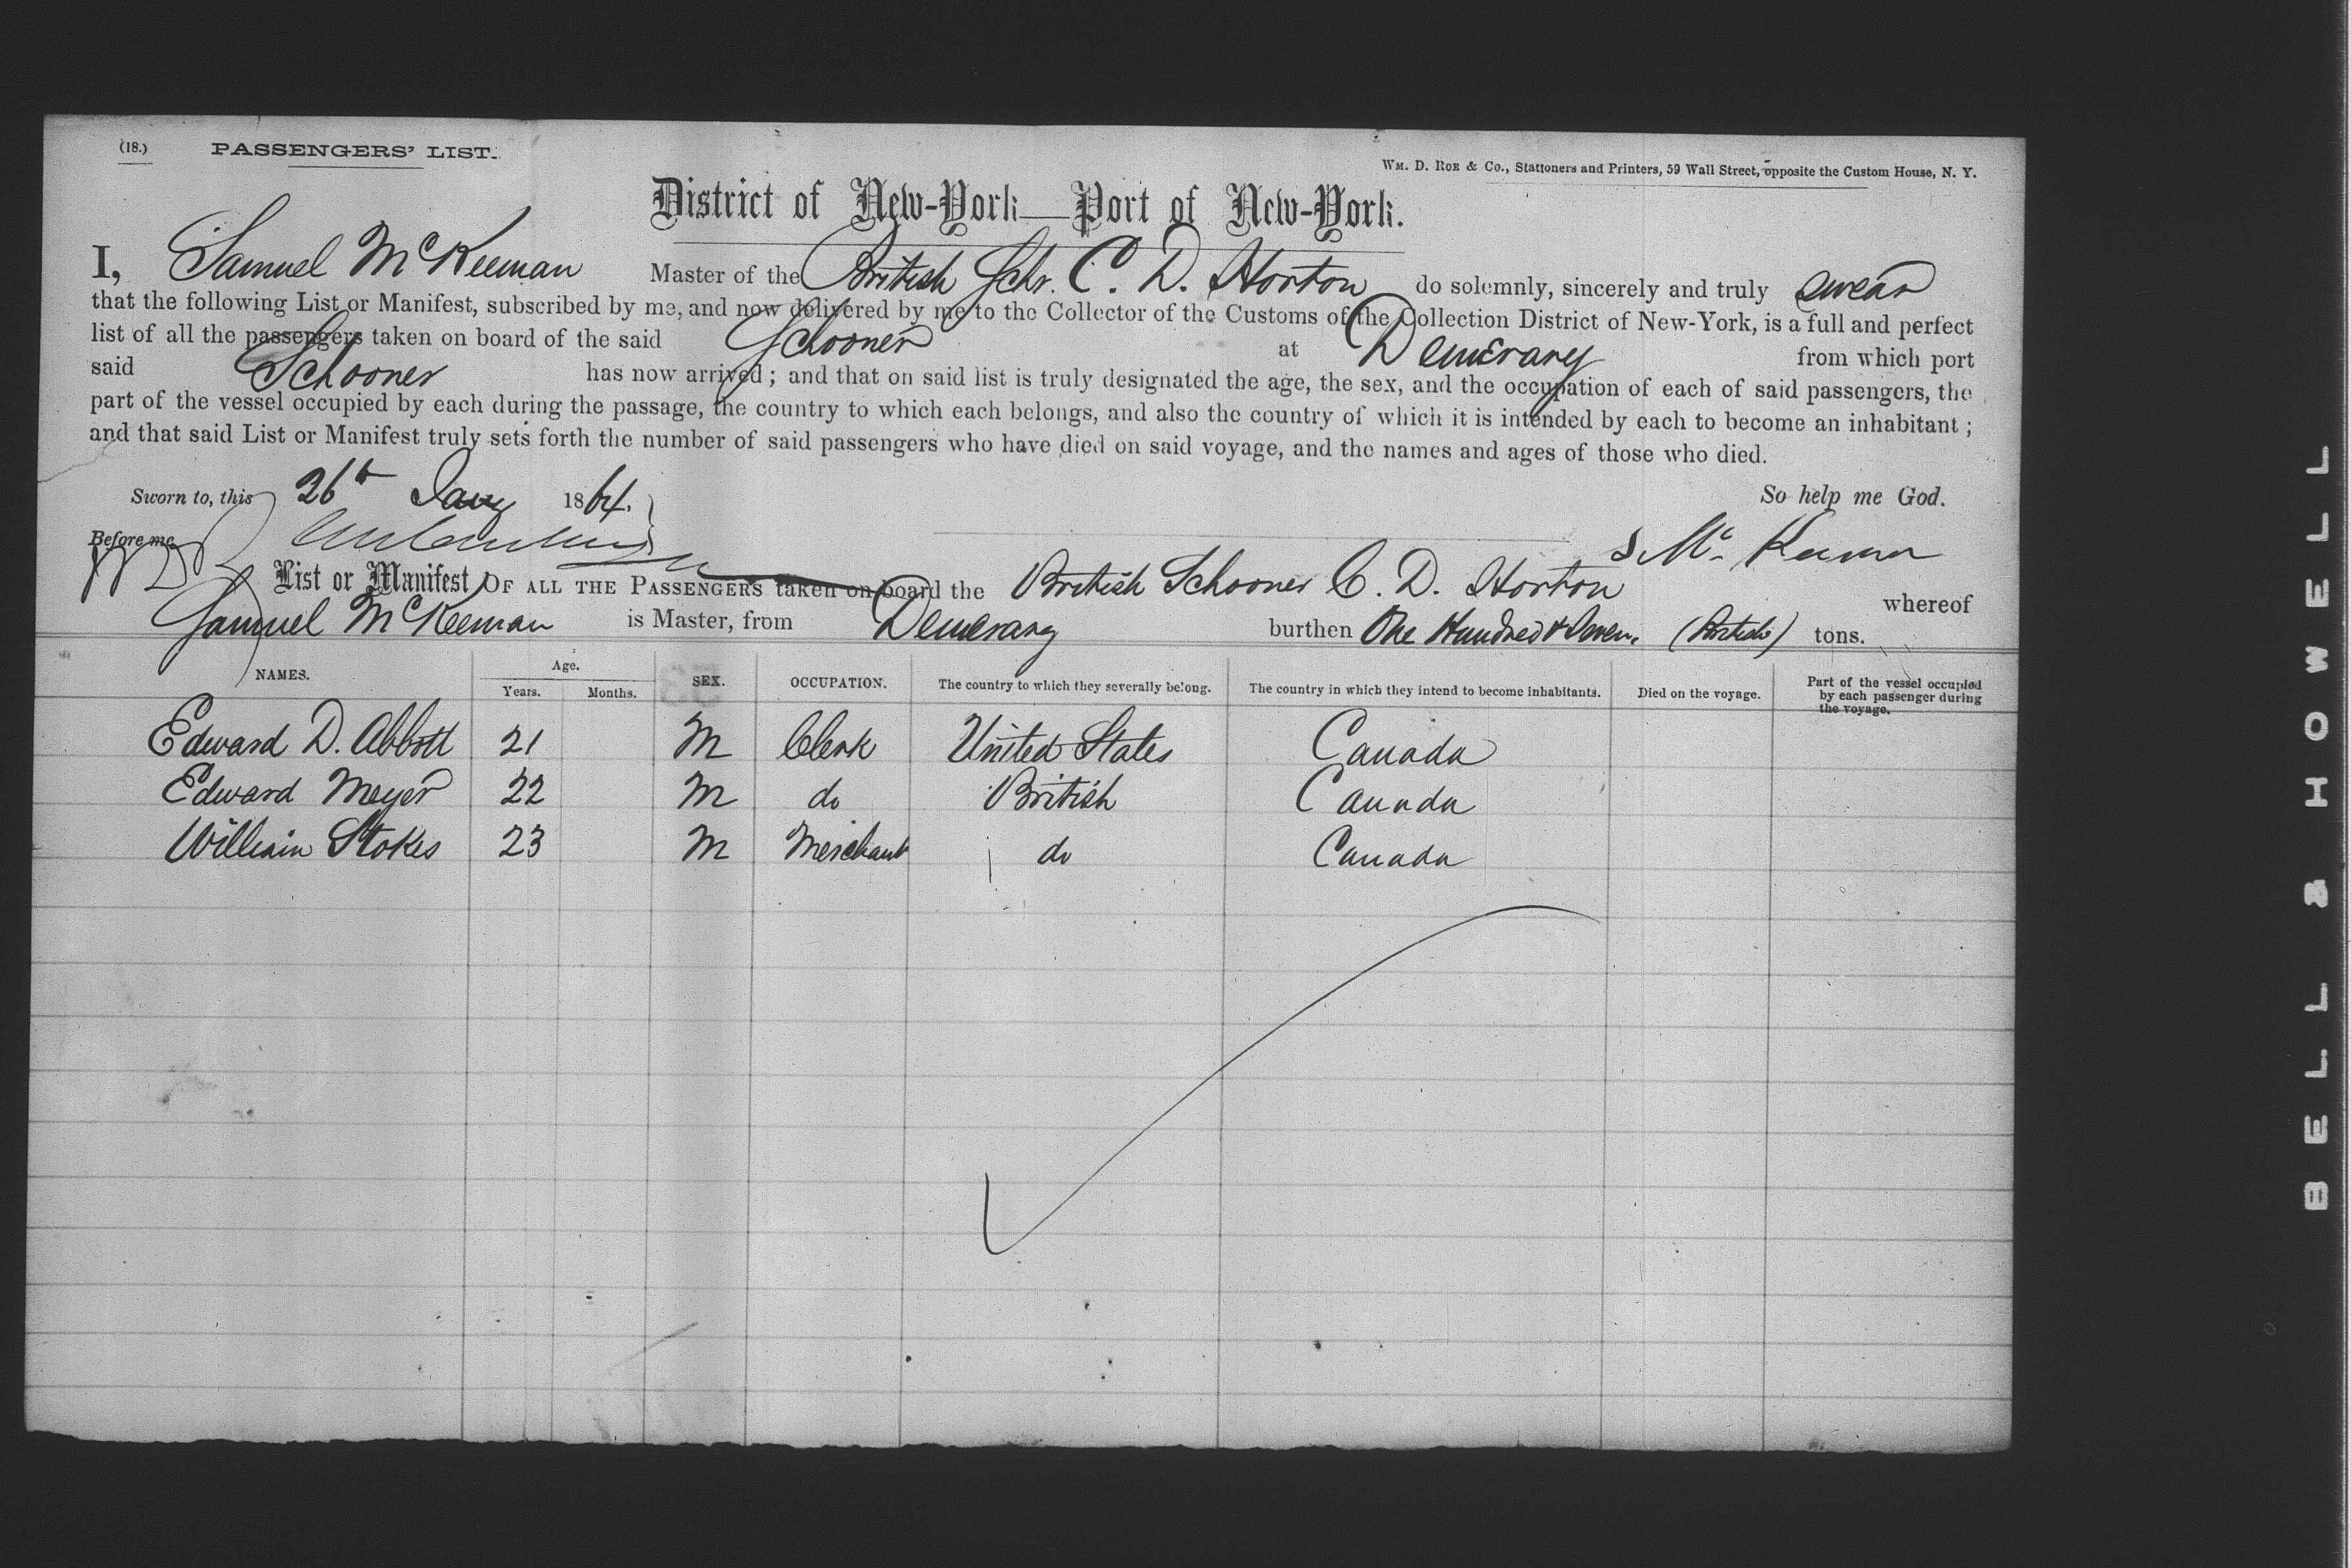 (18.) PASSENGERS' LIST.
WM. D. ROE & Co., Stationers and Printers, 59 Wall Street, opposite the Custom House, N. Y.
District of New-York—Port of New-York.
I, Samuel McKeeman Master of the British Schr. C. D. Horton do solemnly, sincerely and truly swear
that the following List or Manifest, subscribed by me, and now delivered by me to the Collector of the Customs of the Collection District of New-York, is a full and perfect
list of all the passengers taken on board of the said Schooner at Demerary from which port
said Schooner has now arrived; and that on said list is truly designated the age, the sex, and the occupation of each of said passengers, the
part of the vessel occupied by each during the passage, the country to which each belongs, and also the country of which it is intended by each to become an inhabitant;
and that said List or Manifest truly sets forth the number of said passengers who have died on said voyage, and the names and ages of those who died.
Sworn to, this 26th Jany 1864. So help me God.
Before me S Mc Keeman
List or Manifest OF ALL THE PASSENGERS taken on board the British Schooner C. D. Horton whereof
Samuel McKeeman is Master, from Demerary burthen One Hundred & Seven. (British) tons.
NAMES. Age. Years. Months. SEX. OCCUPATION. The country to which they severally belong. The country in which they intend to become inhabitants. Died on the voyage. Part of the vessel occupied by each passenger during the voyage.
Edward D. Abbott 21 M Clerk United States Canada
Edward Meyer 22 M do British Canada
William Stokes 23 M Merchant do Canada
BELL & HOWELL